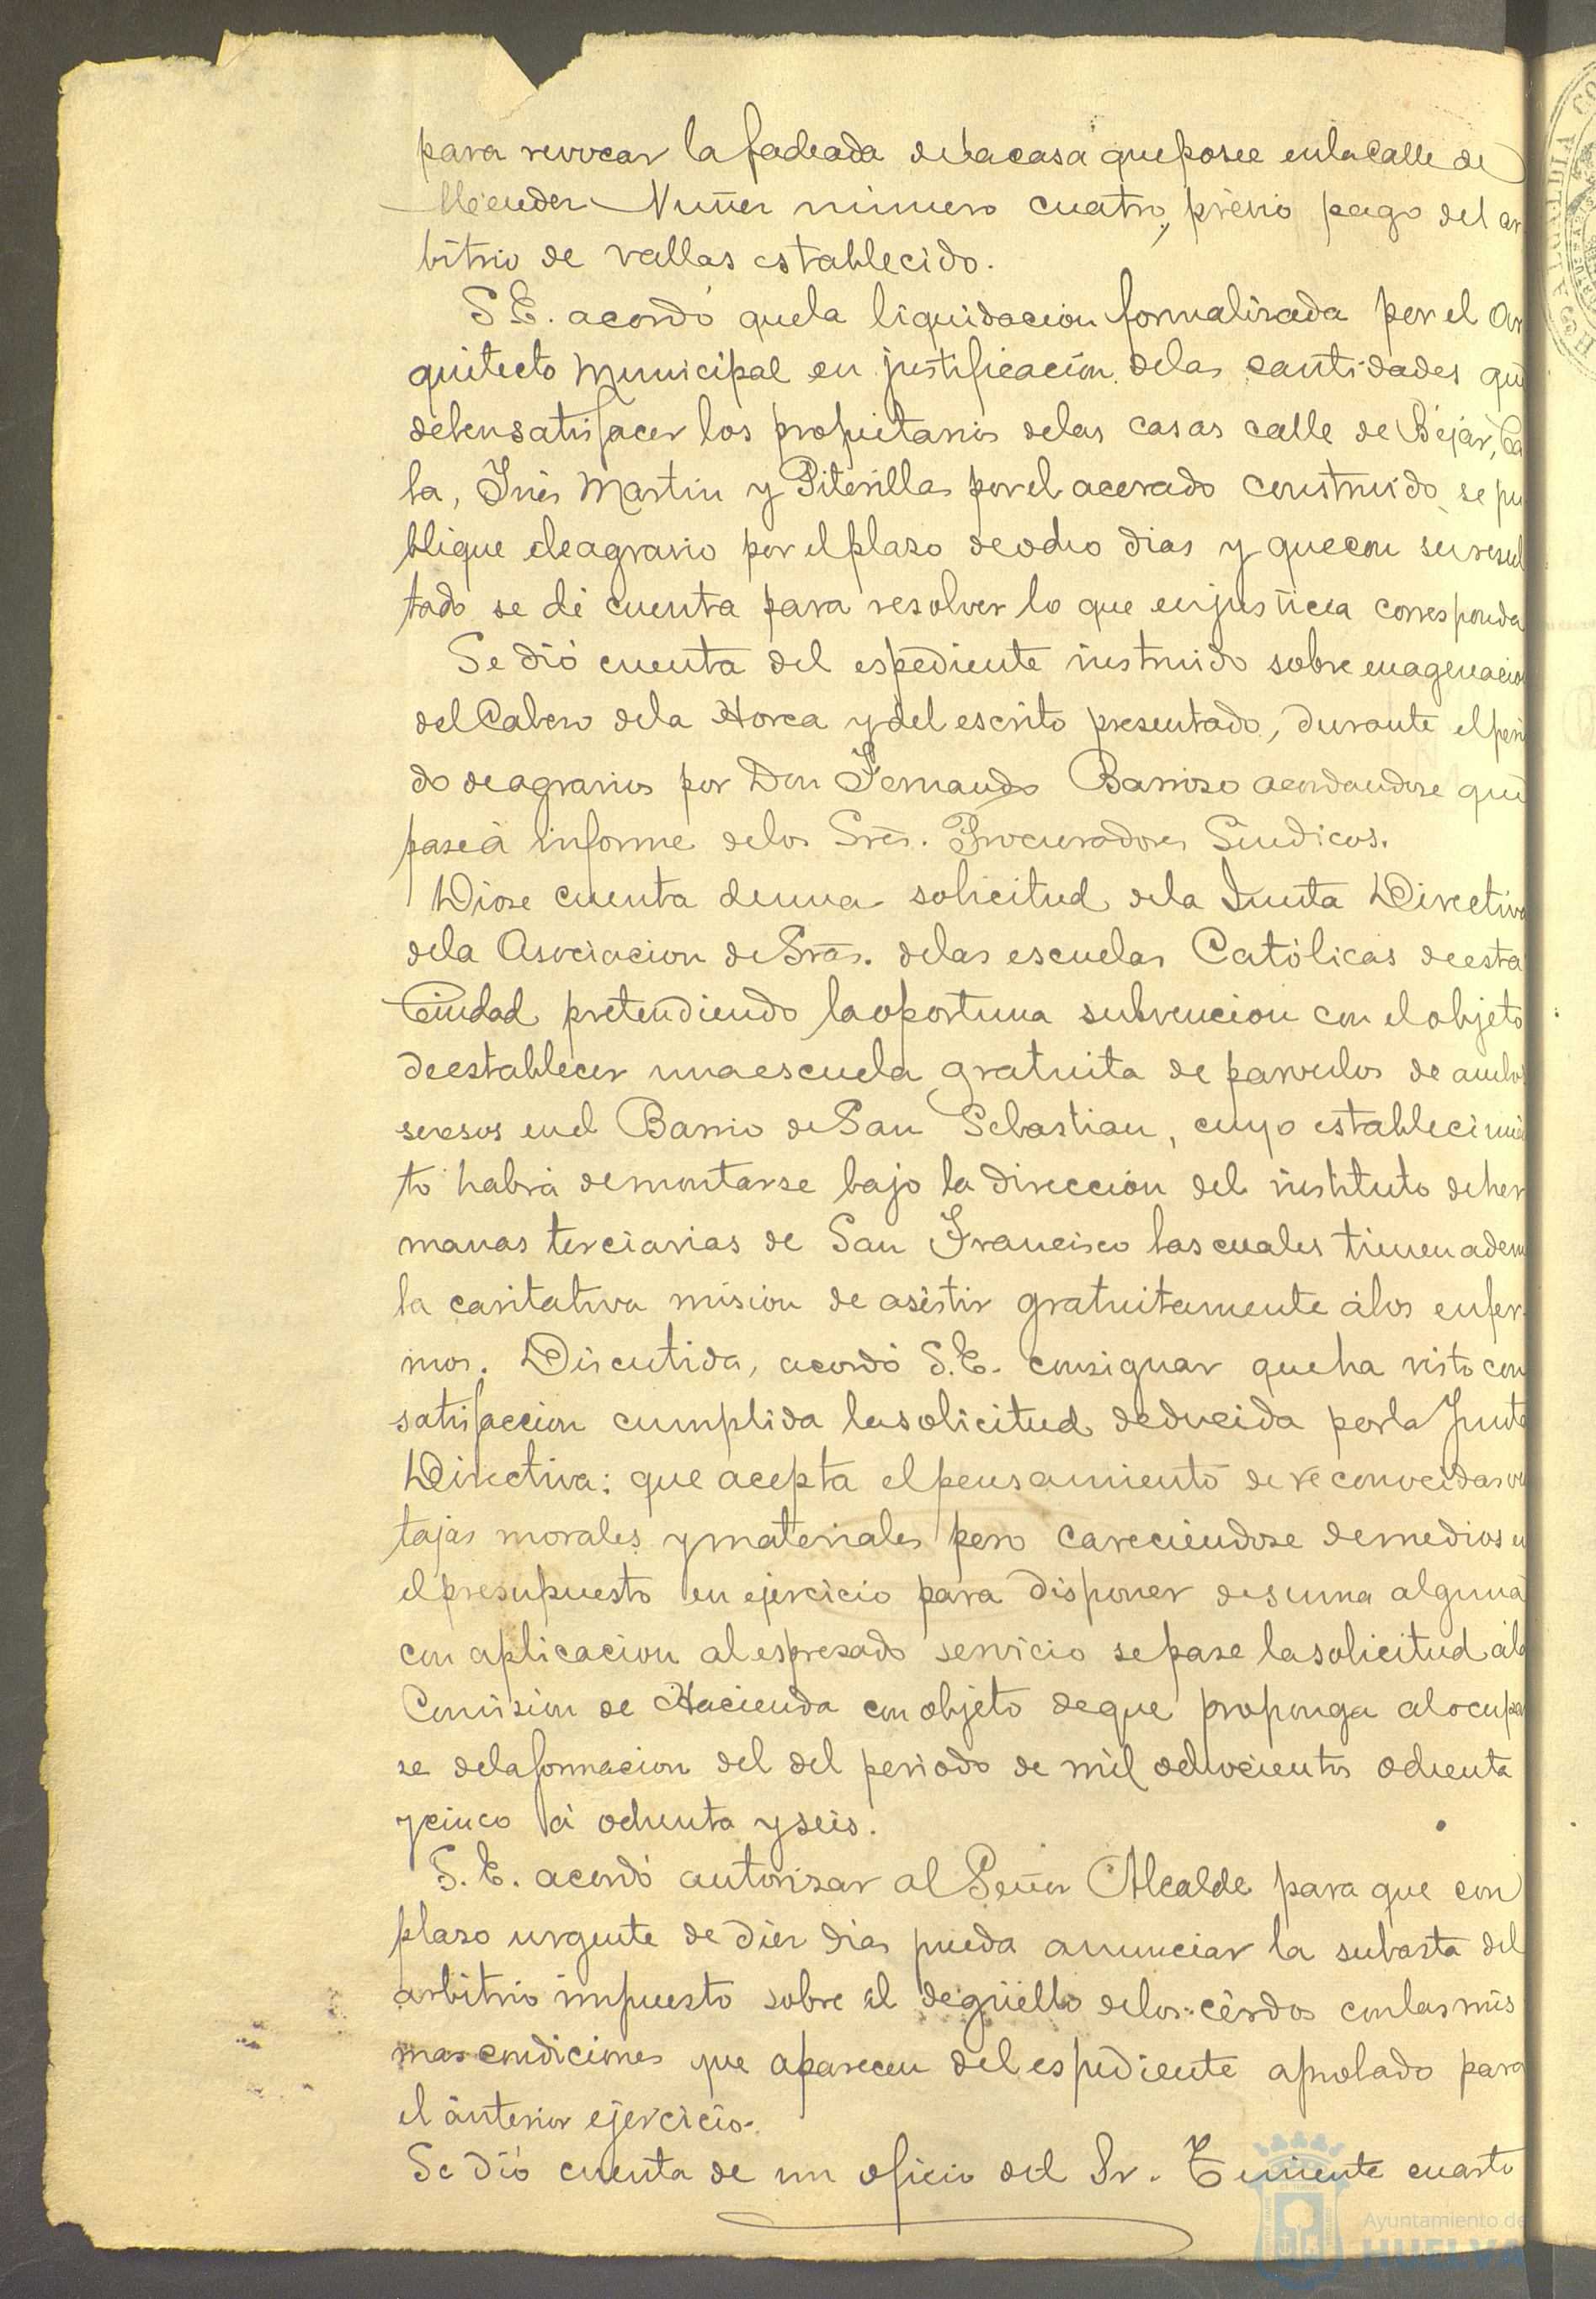 para revocar la fachada de la casa que posee en la Calle de
Mendez Nuñez número cuatro, prévio pago del ar
bitrio de vallas establecido.
S. E. acordó que la liquidacion formalizada por el Ar
quitecto Municipal en justificacion de las cantidades que
deben satisfacer los propietarios de las casas calle de Béjar, Ca
la, Inés Martin y Piterillas por el acerado construido se pu
blique de agravio por el plazo de ocho dias y que con su resul
tado se dé cuenta para resolver lo que en justicia corresponda
Se dió cuenta del espediente instruido sobre enagenacion
del Cabezo de la Horca y del escrito presentado, durante el perio
do de agravios por Don Fernando Barroso acordandose que
pase á informe de los Sres. Procuradores Sindicos.
Diose cuenta de una solicitud de la Junta Directiva
de la Asociacion de Sras. de las escuelas Católicas de esta
Ciudad pretendiendo la oportuna subvencion con el objeto
de establecer una escuela gratuita de parvulos de ambos
secsos en el Barrio de San Sebastian, cuyo establecimien
to habrá de montarse bajo la direccion del instituto de her
manas terciarias de San Francisco las cuales tienen adem
la caritativa mision de asistir gratuitamente á los enfer
mos. Discutida, acordó S. E. consignar que ha visto con
satisfaccion cumplida la solicitud deducida por la Junta
Directiva: que acepta el pensamiento de reconocidas ven
tajas morales y materiales pero careciendose de medios en
el presupuesto en ejercicio para disponer de suma alguna
con aplicacion al espresado servicio se pase la solicitud á la
Comision de Hacienda con objeto de que proponga al ocupar
se de la formacion del del periodo de mil ochocientos ochenta
y cinco á ochenta y seis.
S. E. acordó autorizar al Señor Alcalde para que con
plazo urgente de diez dias pueda anunciar la subasta del
arbitrio impuesto sobre el degüello de los cerdos con las mis
mas condiciones que aparecen del espediente aprobado para
el anterior ejercicio.
Se dió cuenta de un oficio del Sr. Teniente cuarto
Ayuntamiento de
HUELVA